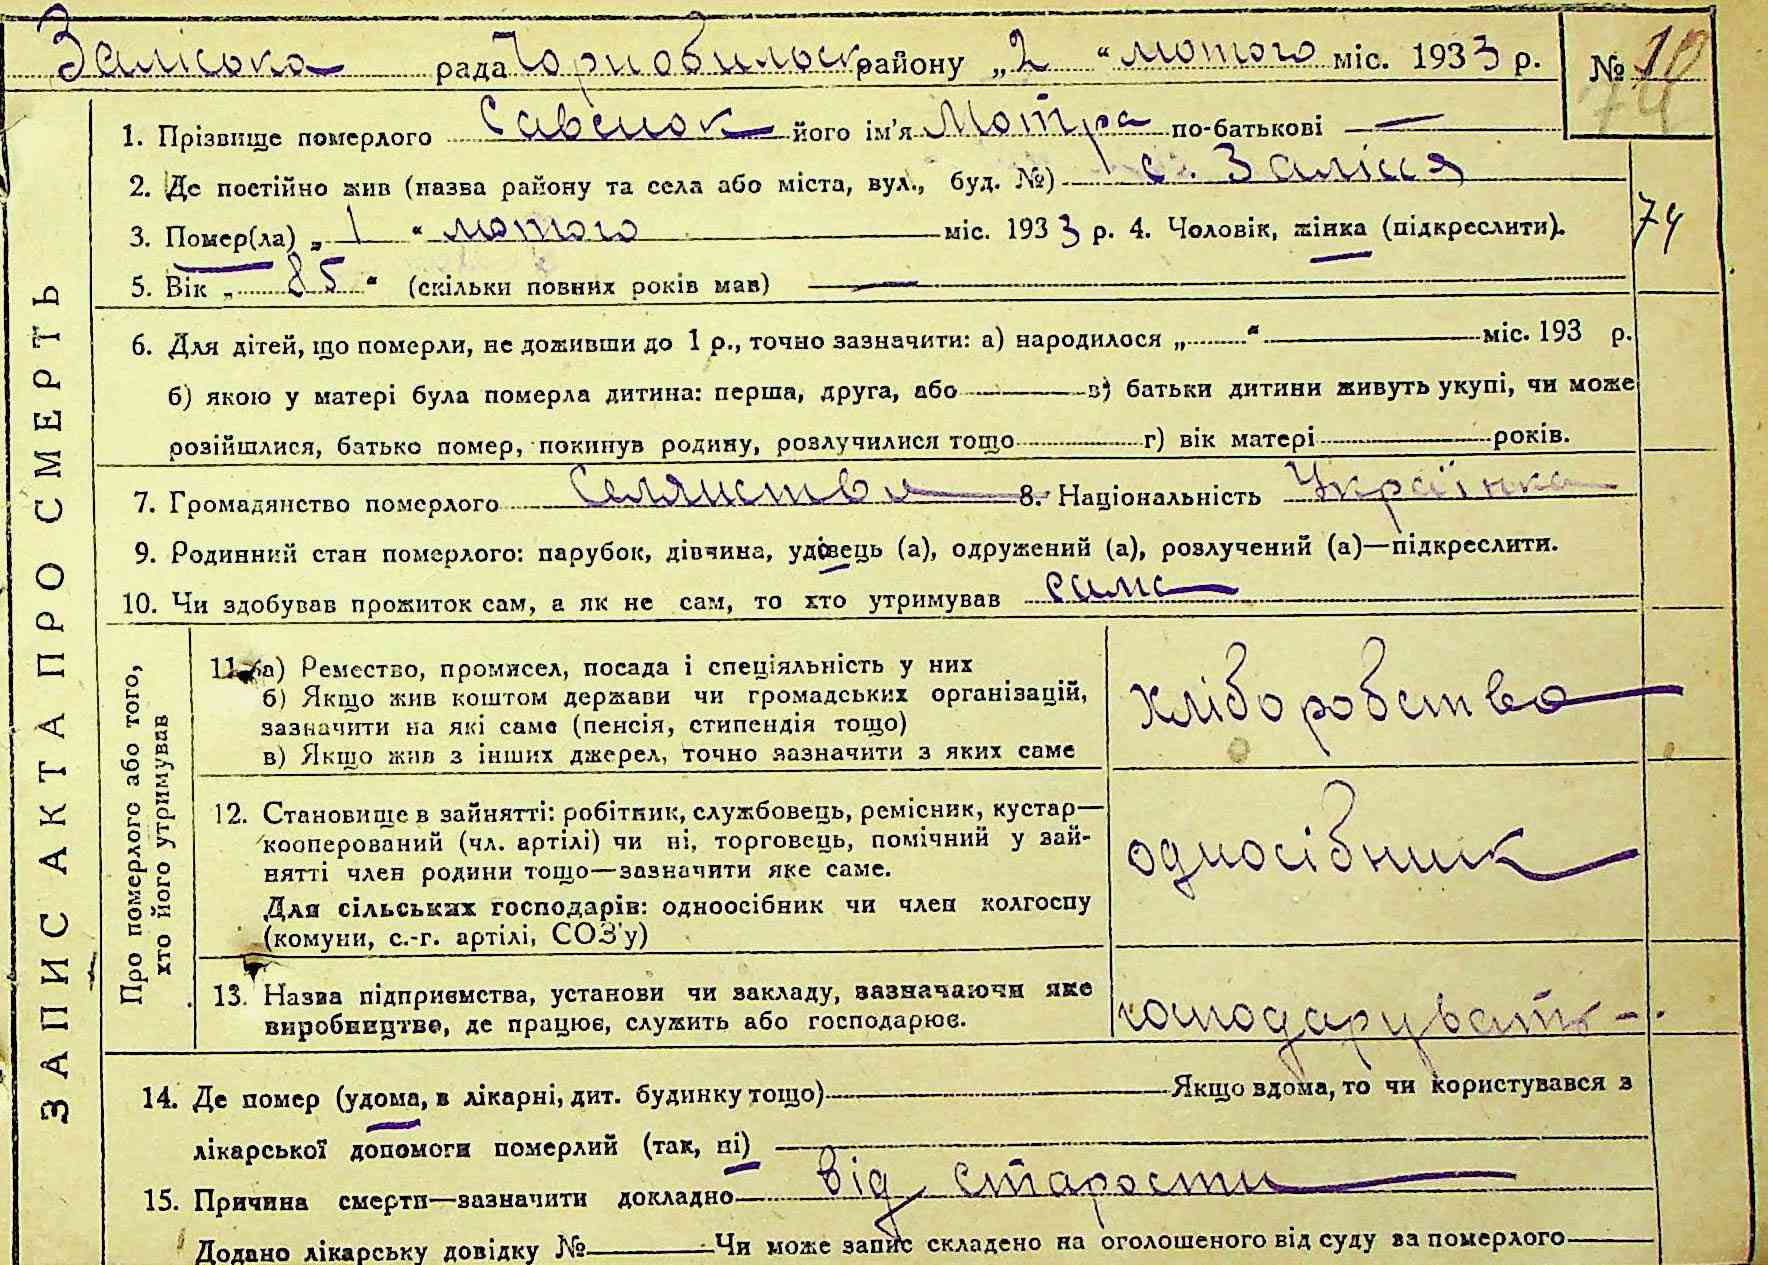 Заліська рада Чорнобильськ району „2“ лютого міс. 1933 р. № 10
74
1. Прізвище померлого Савенок його ім'я Мотря по-батькові —
2. Де постійно жив (назва району та села або міста, вул., буд. №) с. Залісся
74
3. Помер(ла) „1“ лютого міс. 1933 р. 4. Чоловік, жінка (підкреслити).
5. Вік „85“ (скільки повних років мав) —
6. Для дітей, що померли, не доживши до 1 р., точно зазначити: а) народилося „......“ міс. 193 р.
б) якою у матері була померла дитина: перша, друга, або в) батьки дитини живуть укупі, чи може
розійшлися, батько помер, покинув родину, розлучилися тощо г) вік матері років.
7. Громадянство померлого Селянства 8. Національність Українка
9. Родинний стан померлого: парубок, дівчина, удівець (а), одружений (а), розлучений (а)—підкреслити.
10. Чи здобував прожиток сам, а як не сам, то хто утримував сама
ЗАПИС АКТА ПРО СМЕРТЬ
Про померлого або того,
хто його утримував
11. а) Ремество, промисел, посада і спеціяльність у них
б) Якщо жив коштом держави чи громадських організацій,
зазначити на які саме (пенсія, стипендія тощо)
в) Якщо жив з інших джерел, точно зазначити з яких саме
хліборобство
12. Становище в зайнятті: робітник, службовець, ремісник, кустар—
кооперований (чл. артілі) чи ні, торговець, помічний у зай-
нятті член родини тощо—зазначити яке саме.
Для сільських господарів: одноосібник чи член колгоспу
(комуни, с.-г. артілі, СОЗ'у)
односібник
13. Назва підприємства, установи чи закладу, зазначаючи яке
виробництво, де працює, служить або господарює.
господарувать -.
14. Де помер (удома, в лікарні, дит. будинку тощо) Якщо вдома, то чи користувався з
лікарської допомоги померлий (так, ні)
15. Причина смерти—зазначити докладно від старости
Додано лікарську довідку № Чи може запис складено на оголошеного від суду за померлого